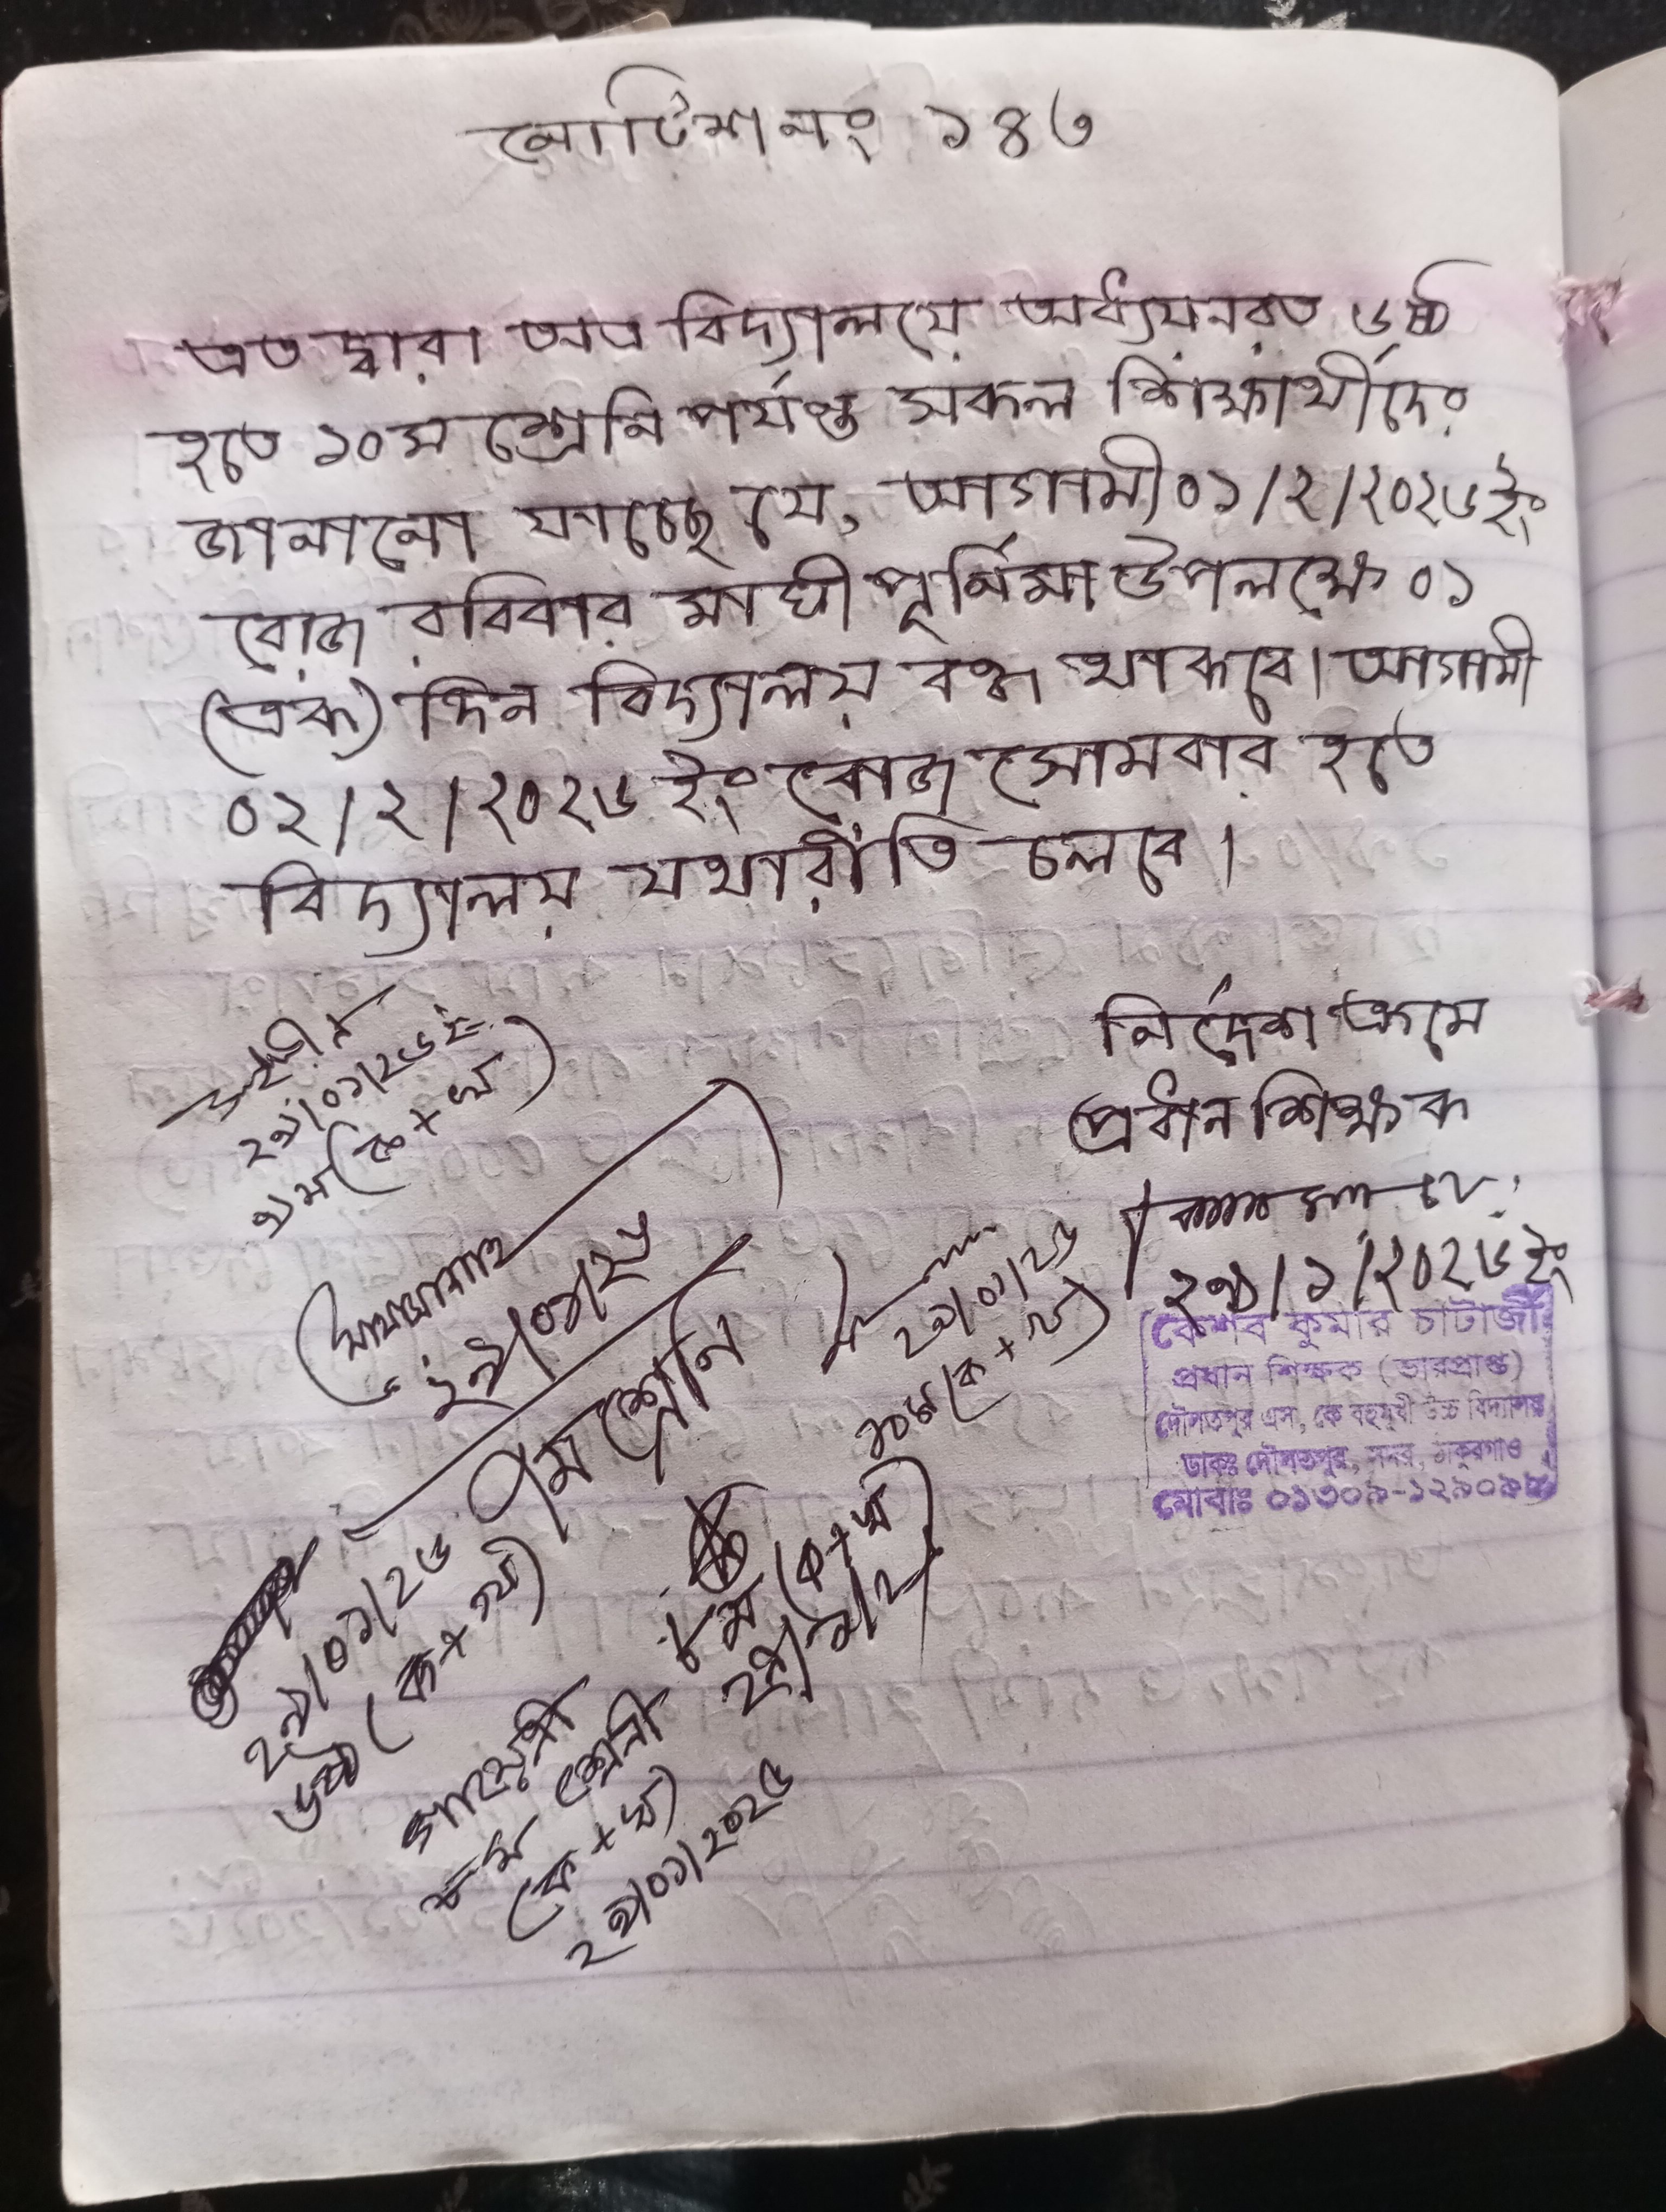 নোটিশ নং ১৪৩
এত দ্বারা অত্র বিদ্যালয়ে অধ্যয়নরত ৬ষ্ঠ
হতে ১০ম শ্রেনি পর্যন্ত সকল শিক্ষার্থীদের
জানানো যাচ্ছে যে, আগামী ০১/২/২০২৬ ইং
রোজ রবিবার মাঘী পূর্নিমা উপলক্ষে ০১
(এক) দিন বিদ্যালয় বন্ধ থাকবে। আগামী
০২/২/২০২৬ ইং রোজ সোমবার হতে
বিদ্যালয় যথারীতি চলবে।
নির্দেশ ক্রমে
প্রধান শিক্ষক
২৯/১/২০২৬ ইং
কেশব কুমার চাটার্জী
প্রধান শিক্ষক (ভারপ্রাপ্ত)
দৌলতপুর এস, কে বহুমুখী উচ্চ বিদ্যালয়
ডাকঃ দৌলতপুর, সদর, ঠাকুরগাও
মোবাঃ ০১৩০৯-১২৯০৯৮
২৯/০১/২৬ ইং
৯ম (ক+খ)
২৯/০১/২৬
৭ম শ্রেনি
২৯/০১/২৬
১০ম (ক+খ)
২৯/০১/২৬
৬ষ্ঠ (ক+খ)
৮ম (ক+খ)
৮ম শ্রেনী
(ক+খ)
২৯/০১/২০২৬